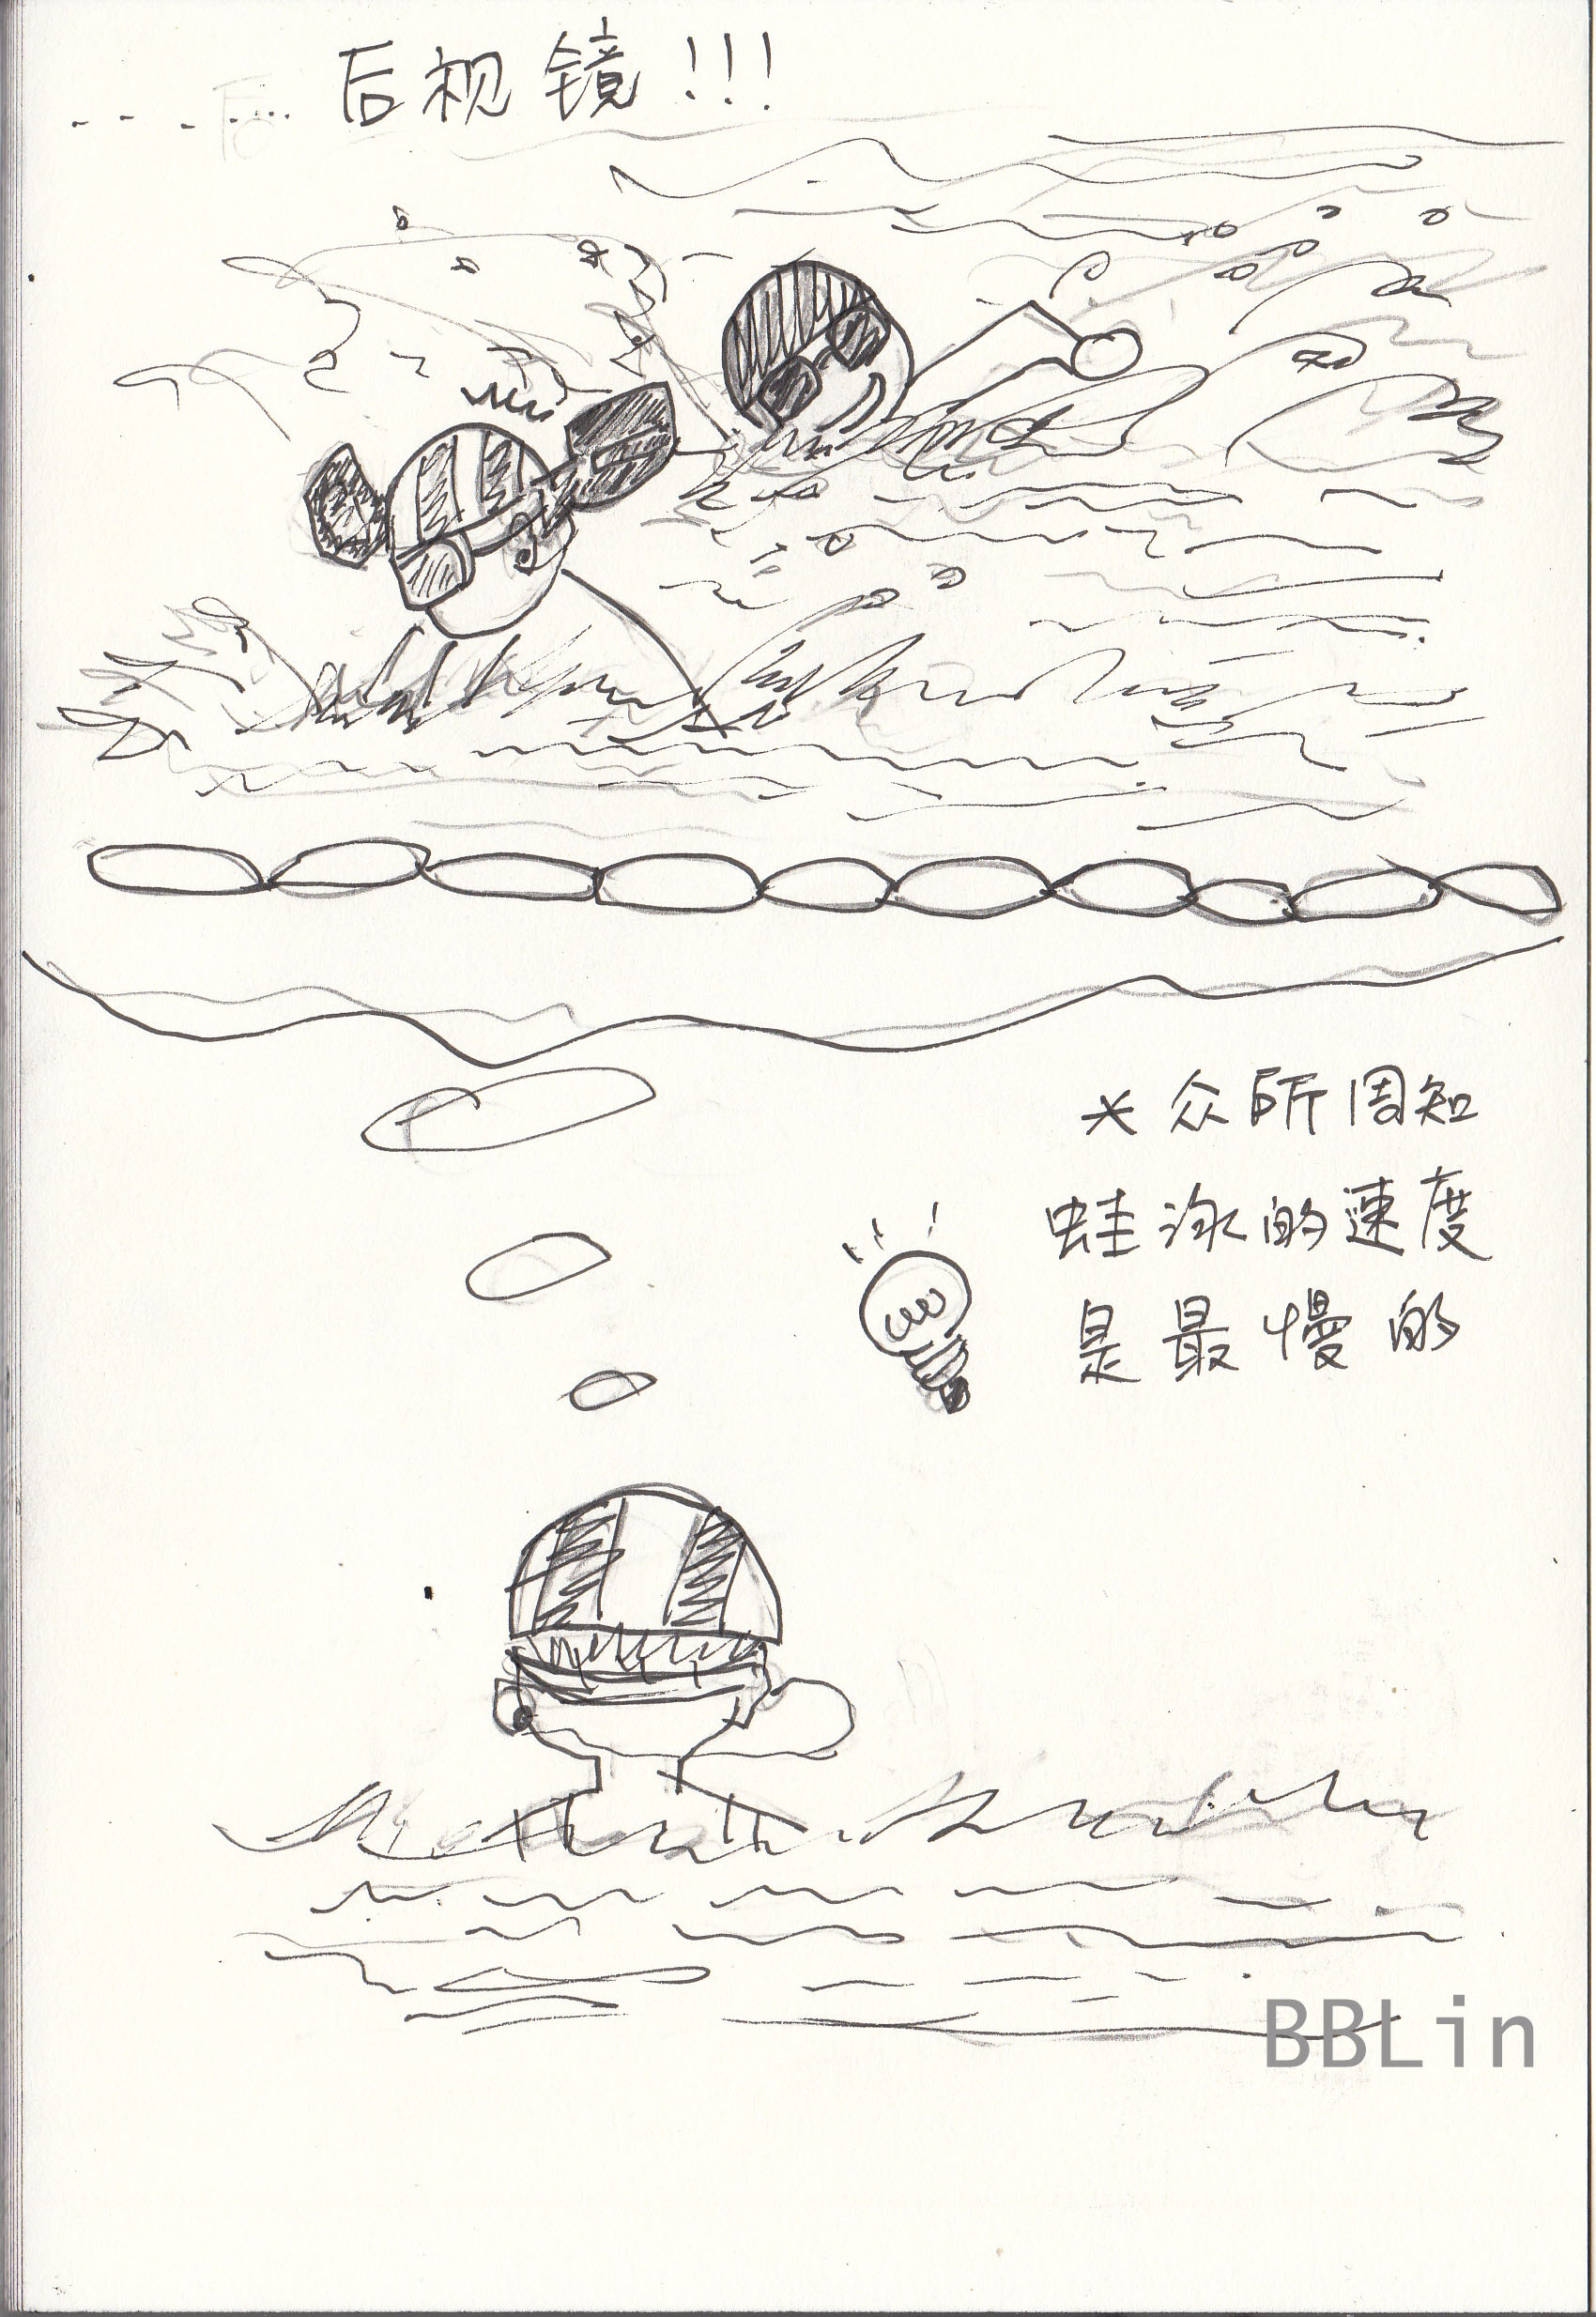 ..... 后视镜!!!
大众所周知
蛙泳的速度
是最慢的
BBLin